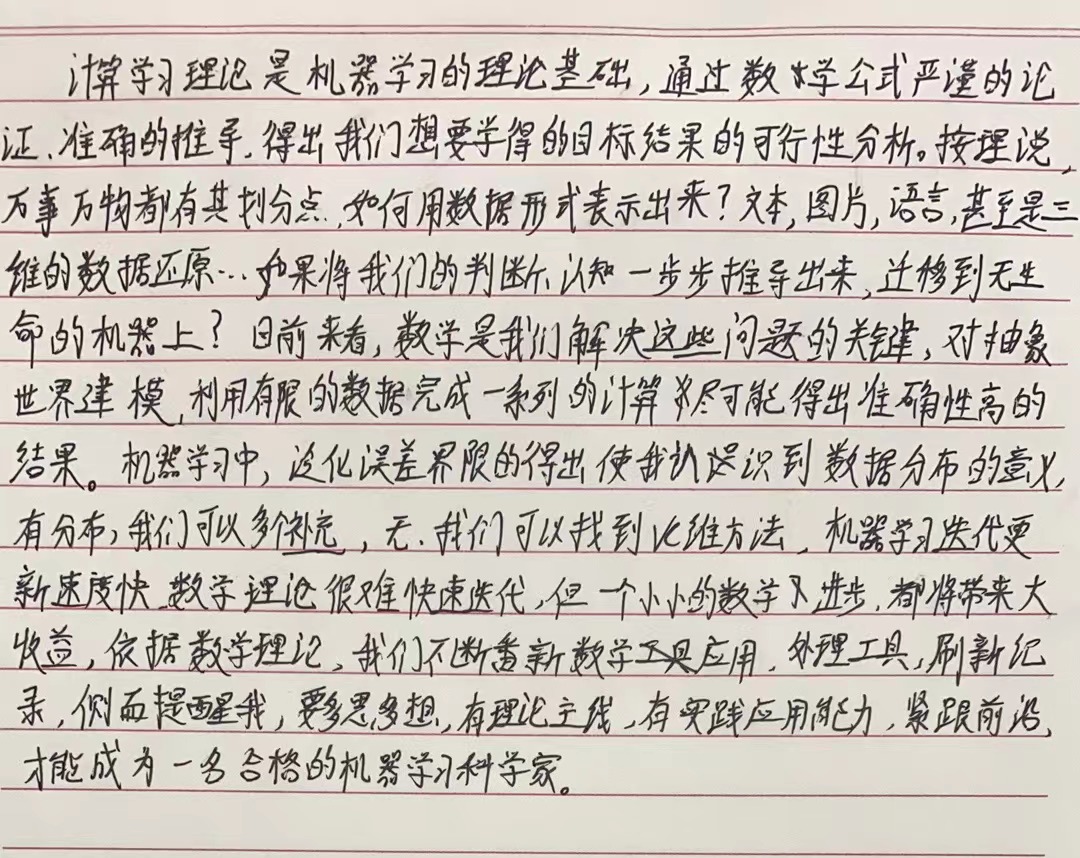 计算学习理论是机器学习的理论基础,通过数学公式严谨的论
证、准确的推导,得出我们想要学得的目标结果的可行性分析。按理说,
万事万物都有其划分点,如何用数据形式表示出来?文本,图片,语言,甚至是三
维的数据还原…如果将我们的判断、认知一步步推导出来,迁移到无生
命的机器上?目前来看,数学是我们解决这些问题的关键,对抽象
世界建模,利用有限的数据完成一系列的计算尽可能得出准确性高的
结果。机器学习中,泛化误差界限的得出使我认识到数据分布的意义,
有分布,我们可以多个补充,无、我们可以找到化维方法,机器学习迭代更
新速度快,数学理论很难快速迭代,但一个小小的数学进步,都将带来大
收益,依据数学理论,我们不断番新数学应用,处理工具,刷新纪
录,侧面提醒我,要多思多想,有理论主线,有实践应用能力,紧跟前沿,
才能成为一名合格的机器学习科学家。